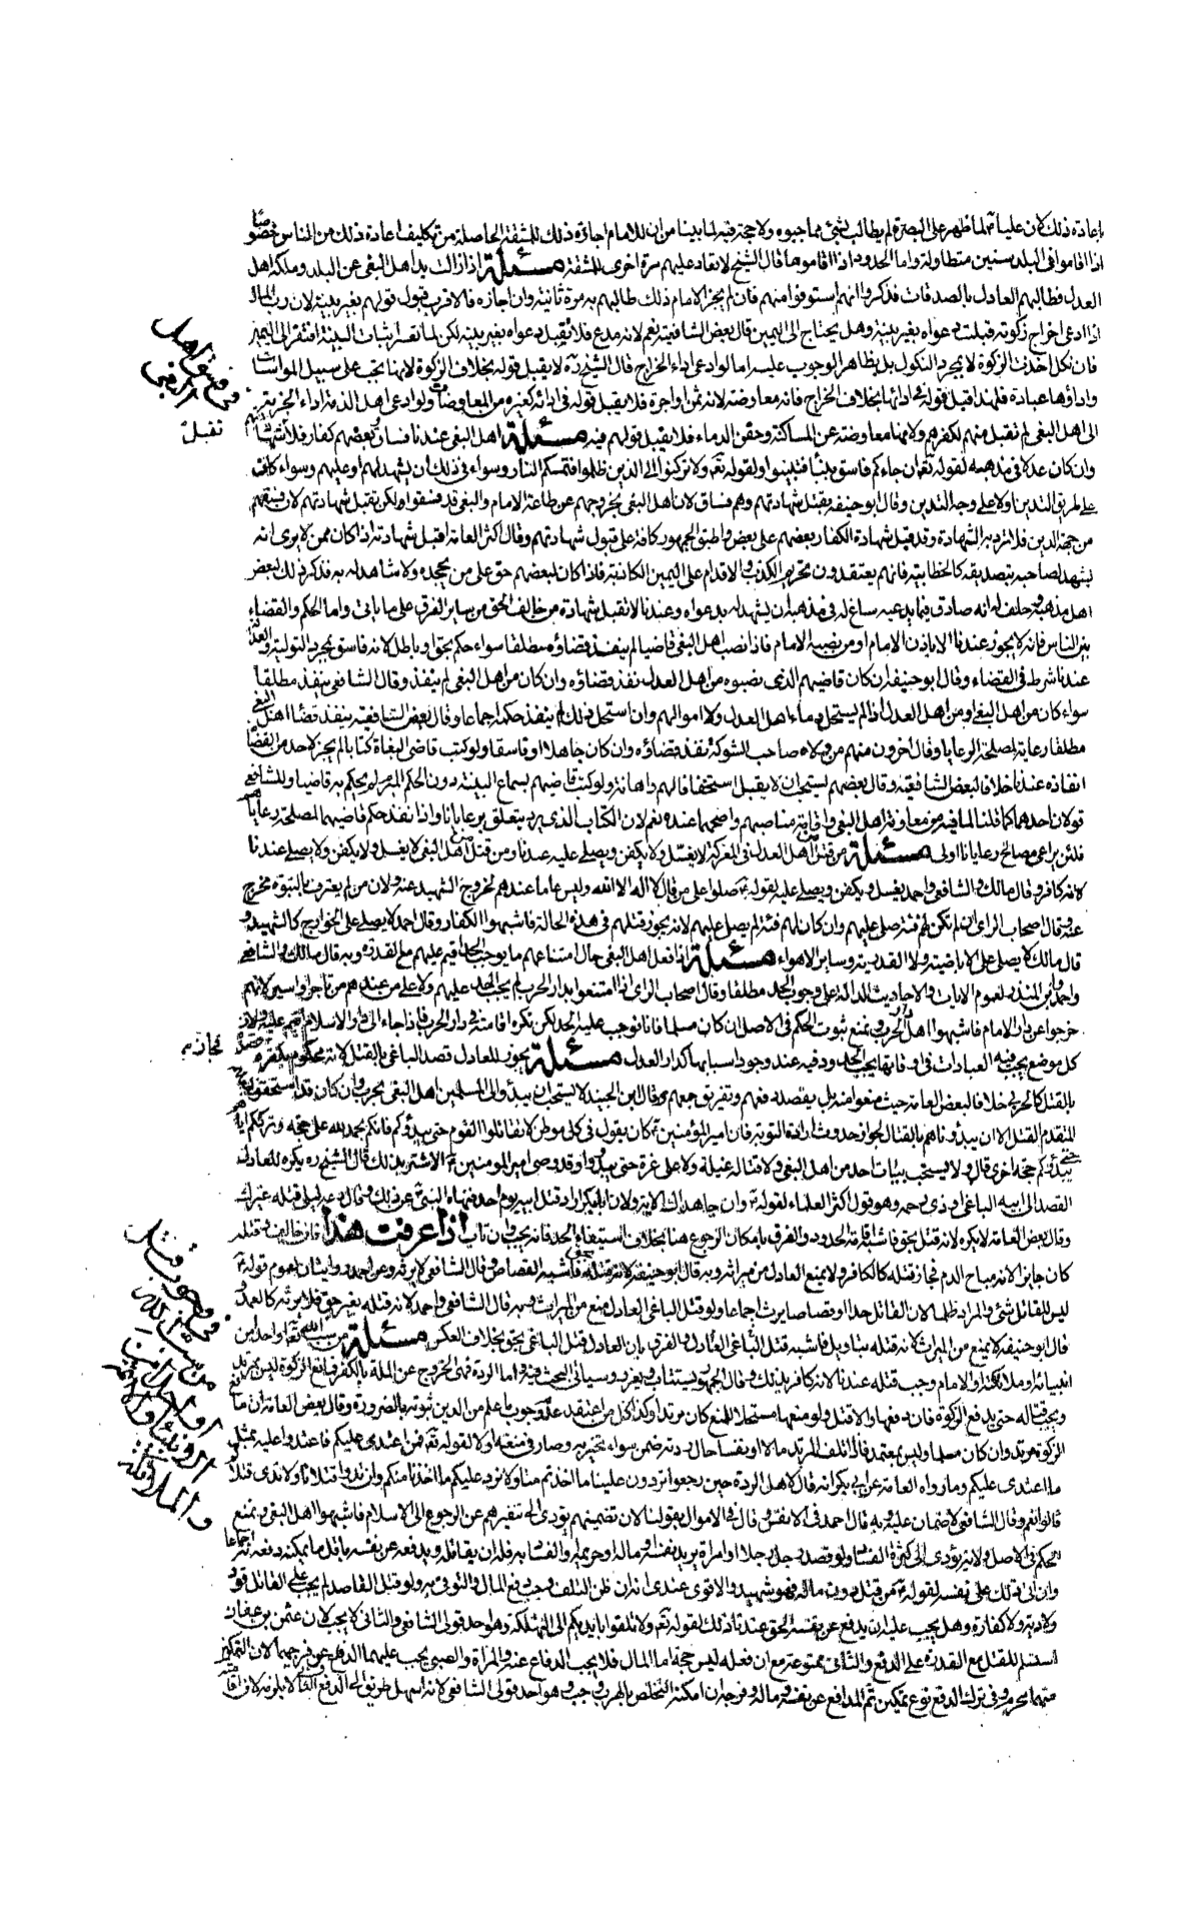 باعادة ذلك لان عليا ع لما ظهر على البصرة لم يطالب بشئ مما جبوه ولا حجة فيه لما بينا من ان للامام اجازة ذلك للمشقة الحاصلة من تكليف اعادة ذلك من الناس خصوصا
اذا اقاموا فى البلد سنين متطاولة واما الحدود اذا اقاموها قال الشيخ لا تعاد عليهم مرة اخرى للمشقة مسئلة اذا زالت يد اهل البغى عن البلد وملكه اهل
العدل فطالبهم العادل بالصدقات فذكروا انهم استوفوا منهم فان لم يجز الامام ذلك طالبهم به مرة ثانية وان اجازه فالاقرب قبول قولهم بغير بينة لان رب المال
اذا ادعى اخراج زكوته قبلت دعواه بغير بينة وهل يحتاج الى اليمين قال بعض الشافعية نعم لانه مدع فلا تقبل دعواه بغير بينة لكن لما تعذر اثبات البينة افتقر الى اليمين
فان نكل اخذت الزكوة لا بمجرد النكول بل بظاهر الوجوب عليه اما لو ادعى اداء الخراج قال الشيخ ره لا يقبل قوله بخلاف الزكوة لانها تجب على سبيل المواساة
واداؤها عبادة فلهذا قبل قوله فى ادائها بخلاف الخراج فانه معاوضة لانه ثمن او اجرة فلا يقبل قوله فى ادائه كغيره من المعاوضات ولو ادعى اهل الذمة اداء الجزية
الى اهل البغى لم تقبل منهم لكفرهم ولانها معاوضة عن المساكنة وحقن الدماء فلا يقبل قولهم فيه مسئلة اهل البغى عندنا فساق وبعضهم كفار فلا تقبل شهادتهم
وان كان عدلا فى مذهبه لقوله تعالى ان جاءكم فاسق بنبأ فتبينوا ولقوله تعالى ولا تركنوا الى الذين ظلموا فتمسكم النار وسواء فى ذلك ان يشهد لهم او عليهم وسواء كانت
على طريق التدين او لا على وجه التدين وقال ابو حنيفة يقبل شهادتهم وهم فساق لان اهل البغى بخروجهم عن طاعة الامام والبغى قد فسقوا ولكن يقبل شهادتهم لان فسقهم
من جهة الدين فلا ترد به الشهادة وقد قبل شهادة الكفار بعضهم على بعض واطبق الجمهور كافة على قبول شهادتهم وقال اكثر العامة اقبل شهادته اذا كان ممن لا يرى انه
يشهد لصاحبه بتصديقه كالخطابية فانهم يعتقدون تحريم الكذب والاقدام على اليمين الكاذبة فاذا كان لبعضهم حق على من يجحده ولا شاهد له به فذكر ذلك لبعض
اهل مذهبه وحلف له انه صادق فيما يدعيه ساغ له فى مذهبه ان يشهد له بدعواه وعندنا لا تقبل شهادة من خالف الحق من ساير الفرق على ما ياتى واما الحكم والقضاء
بين الناس فانه لا يجوز عندنا الا باذن الامام او من نصبه الامام فاذا نصب اهل البغى قاضيا لم ينفذ قضاؤه مطلقا سواء حكم بحق او باطل لانه فاسق بمجرد التولية والعدالة
عندنا شرط فى القضاء وقال ابو حنيفة ان كان قاضيهم الذى نصبوه من اهل العدل نفذ قضاؤه وان كان من اهل البغى لم ينفذ وقال الشافعى ينفذ مطلقا
سواء كان من اهل البغى او من اهل العدل اذا لم يستحل دماء اهل العدل ولا اموالهم وان استحل ذلك لم ينفذ حكمه اجماعا وقال بعض الشافعية ينفذ قضاء اهل البغى
مطلقا رعاية لمصلحة الرعايا وقال اخرون منهم من ولاه صاحب الشوكة نفذ قضاؤه وان كان جاهلا او فاسقا ولو كتب قاضى البغاة كتابا لم يجز لاحد من القضاة
انفاذه عندنا خلافا لبعض الشافعية وقال بعضهم يستحب ان لا يقبل استخفافا لهم واهانة ولو كتب قاضيهم بسماع البينة دون الحكم المبرم لم يحكم به قاضينا وللشافعى
قولان احدهما كما قلنا لما فيه من معاونة اهل البغى واقامة مناصبهم واصحهما عنده نعم لان الكتاب الذى يرد يتعلق برعايانا واذا نفذ حكم قاضيهم لمصلحة رعاياهم
فلئن يراعى مصالح رعايانا اولى مسئلة من قتل من اهل العدل فى المعركة لا يغسل ولا يكفن ويصلى عليه عندنا ومن قتل من اهل البغى لا يغسل ولا يكفن ولا يصلى عندنا
لانه كافر وقال مالك والشافعى واحمد يغسل ويكفن ويصلى عليه لقوله ع صلوا على من قال لا اله الا الله وليس عاما عندهم لخروج الشهيد عنه ولان من لم يعترف بالنبوة مخرج
عنه وقال اصحاب الراى ان لم تكن لهم فئة صلى عليهم وان كان لهم فئة لم يصل عليهم لانه يجوز قتلهم فى هذه الحالة فاشبهوا الكفار وقال احمد لا يصلى على الخوارج كالشهيد و
قال مالك لا يصلى على الاباضية ولا القدرية وساير الاهواء مسئلة اذا فعل اهل البغى حال امتناعهم ما يوجب الحد اقيم عليهم مع القدرة وبه قال مالك والشافعى
واحمد وابن المنذر لعموم الايات والاحاديث الدالة على وجوب الحد مطلقا وقال اصحاب الراى اذا امتنعوا بدار الحرب لم يجب الحد عليهم ولا على من عندهم من تاجر او اسير لانهم
خرجوا عن دار الامام فاشبهوا اهل دار الحرب ونمنع ثبوت الحكم فى الاصل ان كان مسلما فانا نوجب عليه الحد لكن نكره اقامته فى دار الحرب فاذا جاء الى دار الاسلام اقيم عليه ولان
كل موضع يجب فيه العبادات فى اوقاتها يجب الحدود فيه عند وجود اسبابها كدار العدل مسئلة يجوز للعادل قصد الباغى بالقتل لانه محكوم بكفره
بالقتل كالحربى خلافا لبعض العامة حيث منعوا منه بل يقصد دفعهم وتفريق جمعهم وقال ابن الجنيد لا يستحب ان يبدؤ والى المسلمين اهل البغى بحرب وان كان قد استحقوا
المتقدم القتل الا ان يبدؤناهم بالقتال لجواز حدوث ارادة التوبة فان امير المؤمنين ع كان يقول فى كل موطن لا تقاتلوا القوم حتى يبدؤكم فانكم بحمد الله على حجة وترككم اياهم
حتى يبدؤكم حجة اخرى قال ولا يستحب بيات احد من اهل البغى ولا قتاله غيلة ولا على غرة حتى يبدؤا وقد وصى امير المومنين ع الاشتر بذلك قال الشيخ ره يكره للعادل
القصد الى ابيه الباغى او ذى رحمه وهو قول اكثر العلماء لقوله تعالى وان جاهداك الاية ولان ابا بكر اراد قتل ابيه يوم احد فنهاه النبى ص عن ذلك وقال دعه ليلى قتله غيرك
وقال بعض العامة لا يكره لانه قتل بحق فاشبه اقامة الحدود والفرق بامكان الرجوع هنا بخلاف استيفاء الحد فانه يجب وان تاب اذا عرفت هذا فان خالف وقتله
كان جايزا لانه مباح الدم فجاز قتله كالكافر ولا يمنع العادل من ميراثه وبه قال ابو حنيفة لانه قتله بحق فاشبه القصاص وقال الشافعى لا يرثه وعن احمد روايتان لعموم قوله ع
ليس للقاتل شئ والمراد ظلما لان القاتل حدا او قصاصا يرث اجماعا ولو قتل الباغى العادل منع من الميراث وبه قال الشافعى واحمد لانه قتله بغير حق فلا يرثه كالعمد و
قال ابو حنيفة لا يمنع من الميراث لانه قتله بتاويل فاشبه قتل العادل الباغى والفرق بان العادل قتل الباغى بحق بخلاف العكس مسئلة من سب الله تعالى او احدا من
انبيائه وملائكته او الامام وجب قتله عندنا لانه كافر بذلك وقال الجمهور يستتاب ويعزر وسياتى البحث فيه اما الردة فهى الخروج عن الملة بالكفر فمانع الزكوة ليس بمرتد
ويجب قتاله حتى يدفع الزكوة فان دفعها والا قتل ولو منعها مستحلا للمنع كان مرتدا وكذا كل من اعتقد عدم وجوب ما علم من الدين ثبوته بالضرورة وقال بعض العامة ان مانع
الزكوة مرتد وان كان مسلما وليس بمعتمد فاذا اتلف المرتد مالا او نفسا حال ردته ضمن سواء تحيز به وصار فى منعة او لا لقوله تعالى فمن اعتدى عليكم فاعتدوا عليه بمثل
ما اعتدى عليكم وما رواه العامة عن ابى بكر انه قال لاهل الردة حين رجعوا تردون علينا ما اخذتم منا ولا نرد عليكم ما اخذنا منكم وان تدوا قتلانا ولا ندى قتلاكم
قالوا نعم وقال الشافعى لا ضمان عليه وبه قال احمد فى الانفس وقال فى الاموال بقولنا لان تضمينهم يؤدى الى تنفيرهم عن الرجوع الى الاسلام فاشبهوا اهل البغى ونمنع
الحكم فى الاصل ولانه يؤدى الى كثرة الفساد ولو قصد رجل رجلا او امراة يريد نفسه او ماله او حريمه او الفساد به فله ان يقاتله ويدفعه عن نفسه باقل ما يمكنه دفعه به اجماعا
وان اتى ذلك على نفسه لقوله ع من قتل دون ماله فهو شهيد والاقوى عندى انه ان ظن التلف وجب دفع المال والتوقى به ولو قتل القاصد لم يجب على القاتل قود
ولا دية ولا كفارة وهل يجب عليه ان يدفع عن نفسه الحق عندنا ذلك لقوله تعالى ولا تلقوا بايديكم الى التهلكة وهو احد قولى الشافعى والثانى لا يجب لان عثمن بن عفان
استسلم للقتل مع القدرة على الدفع والثانى ممنوعة مع ان فعله ليس حجة اما المال فلا يجب الدفاع عنه والمراة والصبى يجب عليهما الدفع عن فرجهما لان التمكين
منهما محرم وفى ترك الدفع نوع تمكين ثم المدافع عن نفسه وماله وفرجه ان امكنه التخلص بالهرب وجب وهو احد قولى الشافعى لانه اسهل طريق الى الدفع
فى فسق اهل
البغى
تقبل
فجاز به
فى وجوب قتل
من سب الله
او احدا من
الانبياء او الائمة
والملائكة